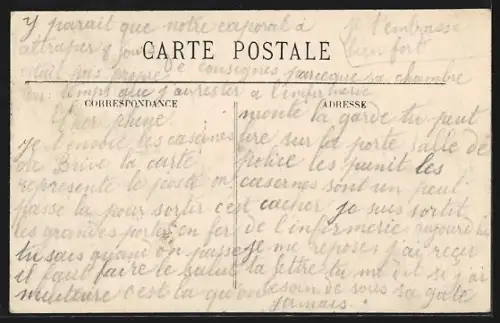 y parait que notre caporal à
attraper 8 jours
CARTE POSTALE
je t'embrasse
bien fort
était pas propre
de consignes parceque sa chambre
temps que j'ai rester a l'infirmerie
CORRESPONDANCE
ADRESSE
Cher
je t'envoie les casernes
de Brive la carte
représente le poste on
passe la pour sortir c'est
les grandes portes en fer
tu sais quand on passe
il faut faire le salut
militaire c'est la qu'on
monte la garde tu peut
lire sur la porte salle de
police les punit les
casernes sont un peut
cacher je suis sortit
de l'infirmerie aujourd'hui
je me repose j'ai reçu
ta lettre tu me dit si j'ai
besoin de sous sa gate
jamais.